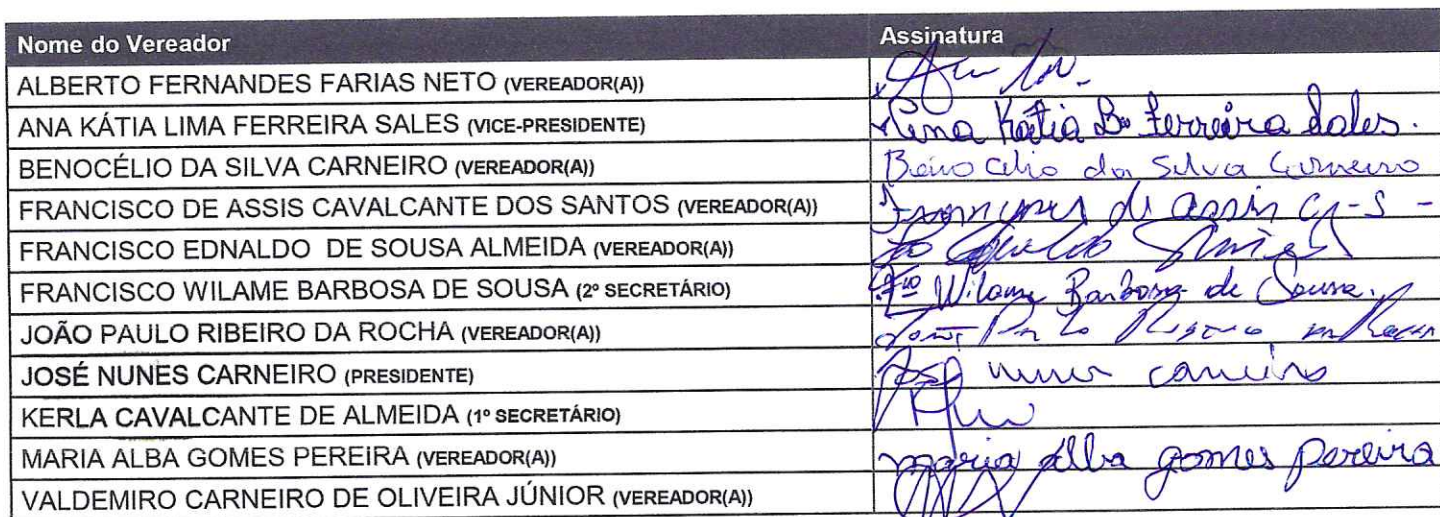 Nome do Vereador Assinatura
ALBERTO FERNANDES FARIAS NETO (VEREADOR(A))
ANA KÁTIA LIMA FERREIRA SALES (VICE-PRESIDENTE) Kátia Ferreira Sales.
BENOCÉLIO DA SILVA CARNEIRO (VEREADOR(A)) Benocelio da Silva Carneiro
FRANCISCO DE ASSIS CAVALCANTE DOS SANTOS (VEREADOR(A)) de assis
FRANCISCO EDNALDO DE SOUSA ALMEIDA (VEREADOR(A))
FRANCISCO WILAME BARBOSA DE SOUSA (2º SECRETÁRIO) Wilame Barbosa de Sousa.
JOÃO PAULO RIBEIRO DA ROCHA (VEREADOR(A))
JOSÉ NUNES CARNEIRO (PRESIDENTE) José nunes carneiro
KERLA CAVALCANTE DE ALMEIDA (1º SECRETÁRIO)
MARIA ALBA GOMES PEREIRA (VEREADOR(A)) maria Alba gomes pereira
VALDEMIRO CARNEIRO DE OLIVEIRA JÚNIOR (VEREADOR(A))